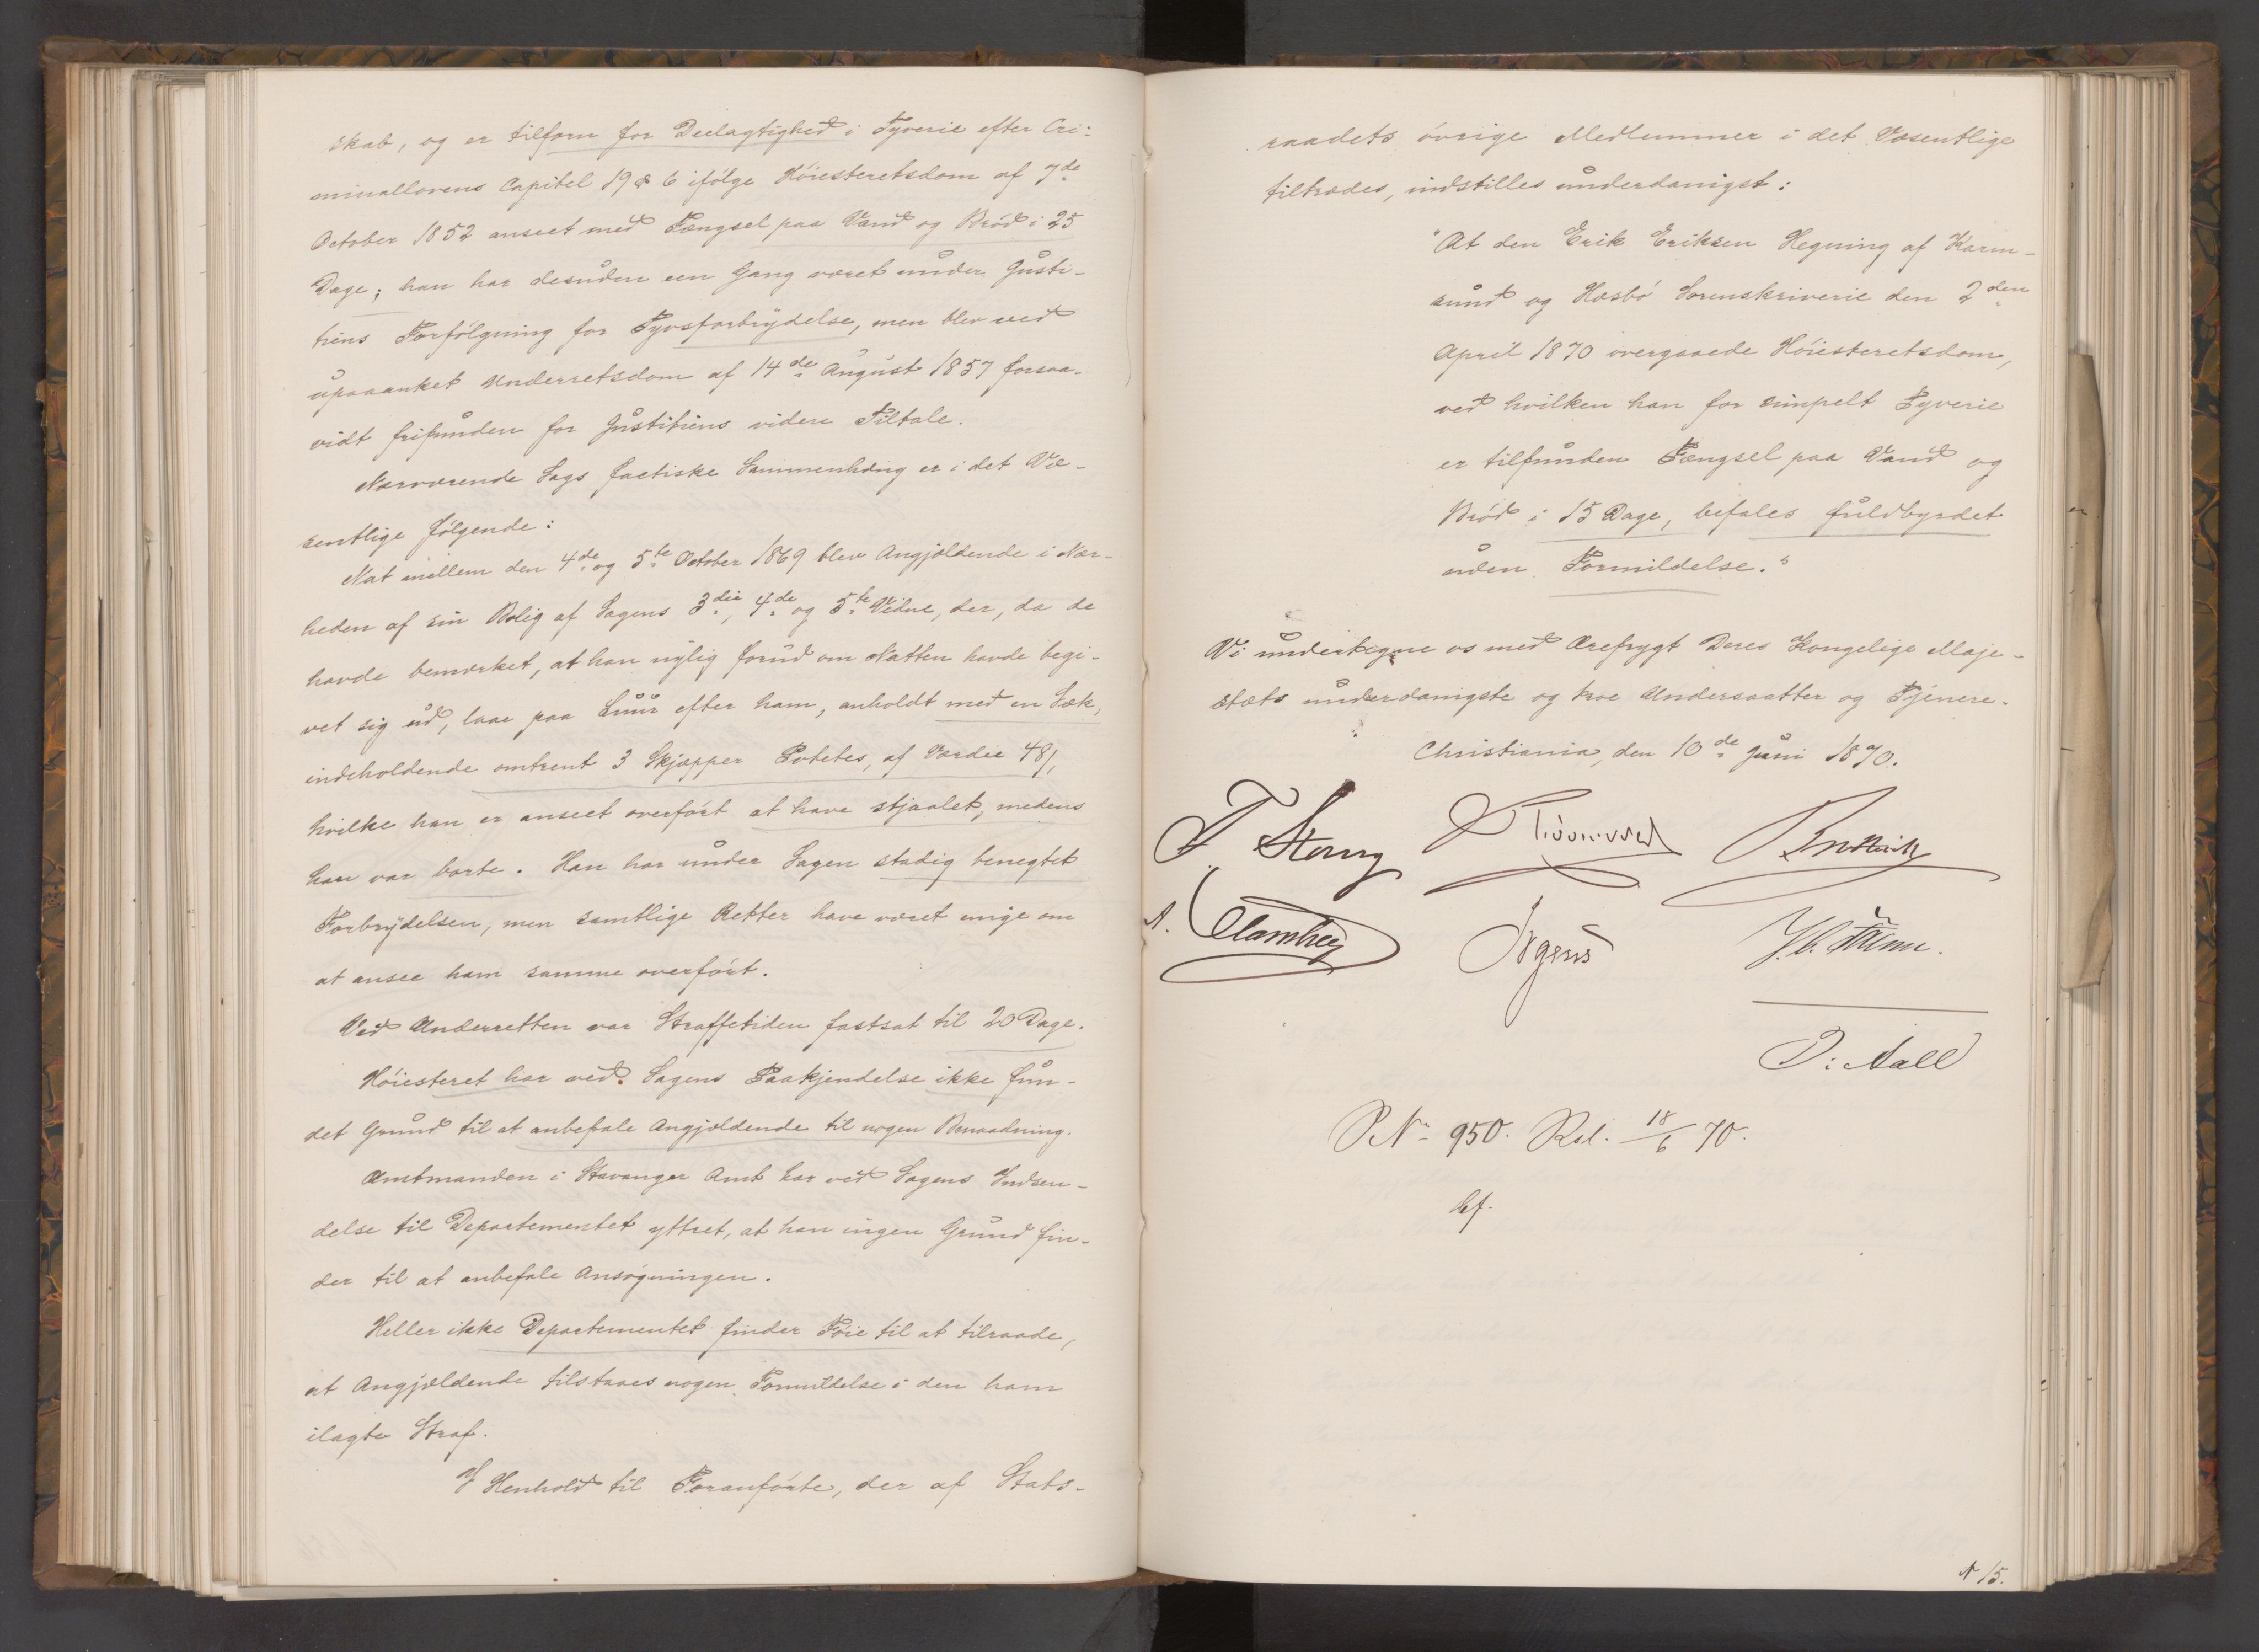 skab, og er tilforn for Deelagtighed i Tyverie efter Cri-
minallovens Capitel 19 § 6 ifølge Høiesteretsdom af 7de
October 1852 anseet med Fængsel paa Vand og Brød i 25
Dage; han har desuden een Gang været under Justi-
tiens Forfølgning for Tyvsforbrydelse, men blev ved
upaaanket Underretsdom af 14de August 1857 forsaa-
vidt frifunden for Justitiens videre Tiltale.
Nærværende Sags factiske Sammenhæng er i det Væ-
sentlige følgende:
Nat mellem den 4de og 5te October 1869 blev Angjældende i Nær-
heden af sin Bolig af Sagens 3die, 4de og 5te Vidne, der, da de
havde bemærket, at han nylig forud om Natten havde begi-
vet sig ud, laae paa Luur efter ham, anholdt med en Sæk,
indeholdende omtrent 3 Skjæpper Potetes, af Værdie 48 ß,
hvilke han er anseet overført at have stjaalet, medens
han var borte. Han har under Sagen stadig benegtet
Forbrydelsen, men samtlige Retter have været enige om
at ansee ham samme overført.
Ved Underretten var Straffetiden fastsat til 20 Dage.
Høiesteret har ved Sagens Paakjendelse ikke fun-
det Grund til at anbefale Angjældende til nogen Benaadning.
Amtmanden i Stavanger Amt har ved Sagens Indsen-
delse til Departementet yttret, at han ingen Grund fin-
der til at anbefale Ansøgningen.
Heller ikke Departementet finder Føie til at tilraade,
at Angjældende tilstaaes nogen Formildelse i den ham
ilagte Straf.
I Henhold til Foranførte, der af Stats-
raadets øvrige Medlemmer i det Væsentlige
tiltrædes, indstilles underdanigst:
"At den Erik Eriksen Hegning af Karm-
sund og Hesbø Sorenskriverie den 2den
April 1870 overgaaede Høiesteretsdom,
ved hvilken han for simpelt Tyverie
er tilfunden Fængsel paa Vand og
Brød i 15 Dage, befales fuldbyrdet
uden Formildelse."
Vi undertegne os med Ærefrygt Deres Kongelige Maje-
stæts underdanigste og troe Undersaatter og Tjenere.
Christiania, den 10de Juni 1870.
F Stang
Irgens
D: Aall
P.No 950. Res. 18/6 70.
N 15.